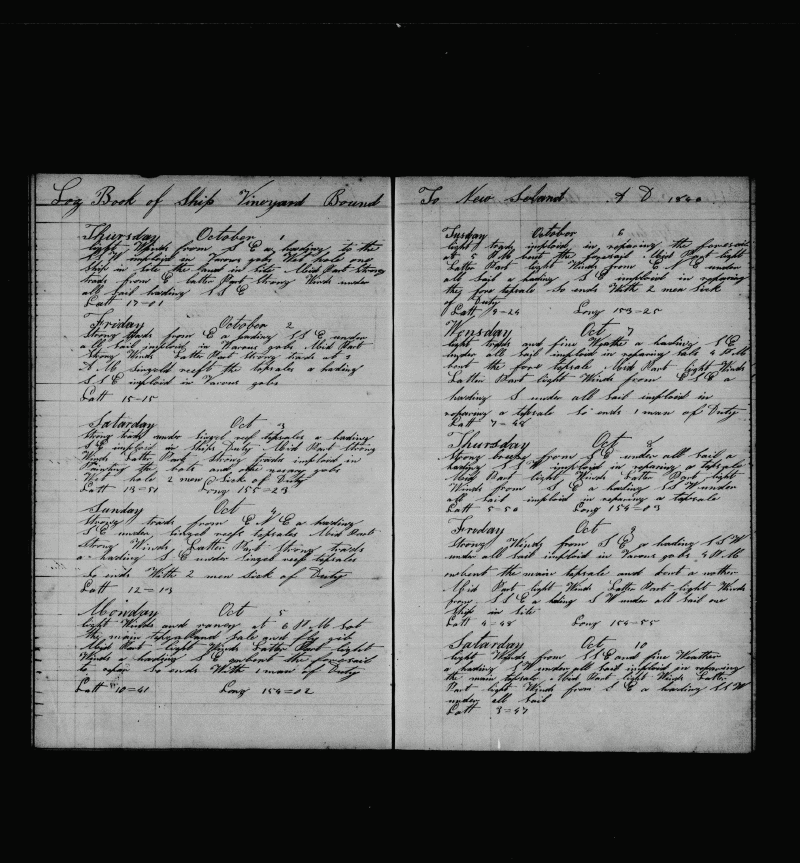 Log Book of Ship Vineyard Bound
Thursday October 1
light Winds from S E a hading to the
S W imploid in Varous gobs Wet hole one
Ship in site the land in site Mid Part Strong
trads from E latter Part Strong Winds under
all sail hading S S E
Latt 17=01
Friday October 2
Strong trads from E a hading S S E under
all sail imploid in Varous gobs Mid Part
Strong Winds Latter Part Strong trads at 2
A M Singeld reeft the topsales a hading
S S E imploid in Varous gobs
Latt 15=15
Saturday Oct 3
Strong trads under singel reef topsales a hading
S E imploid in Ships Duty Mid Part Strong
Winds Latter Part Strong trads imploid in
Painting the bots and other varous gobs
Wet hole 2 men Sick of Duty
Latt 13=51 Long 155=23
Sunday Oct 4
Strong trads from E N E a hading
S E under singel reeft topsales Mid Part
Strong Winds Latter Part Strong trads
a hading S E under singel reeft topsales
So ends With 2 men Sick of Duty
Latt 12=13
Monday Oct 5
light Winds and raney at 6 P M Sot
the main topgalland sale and fly gib
Mid Part light Winds Latter Part light
Winds a hading S E unbent the foresail
to repar So ends With 1 man of Duty
Latt 10=41 Long 154=02
To New Seland A D 1840
Tusday October 6
light trads imploid in reparing the foresail
at 5 P M bent the foresail Mid Part light
Latter Part light Winds from E N E under
all sail a hading S E imploid in reparing
the fore topsale So ends With 2 men Sick
of Duty
Latt 9=24 Long 153=25
Wensday Oct 7
light trads and fine Weathe a hading S E
under all sail imploid in reparing sale 4 P M
bent the fore topsale Mid Part light Winds
Latter Part light Winds from E S E a
hading S under all sail imploid in
reparing a topsale So ends 1 man of Duty
Latt 7=48
Thursday Oct 8
Strong breeze from S E under all sail a
hading S S W imploid in reparing a topsale
Mid Part light Winds Latter Part light
Winds from S E a hading S S W under
all sail imploid in reparing a topsale
Latt 5=50 Long 154=03
Friday Oct 9
Strong Winds from S E a hading S S W
under all sail imploid in Varous gobs 4 P M
unbent the main topsale and bent a nother
Mid Part light Winds Latter Part light Winds
from S S E a hading S W under all sail one
Ship in site
Latt 4=48 Long 154=55
Satarday Oct 10
light Winds from S S E and fine Weather
a hading S W under all sail imploid in reparing
the main topsale Mid Part light Winds Latter
Part light Winds from S E a hading S S W
under all sail
Latt 3=47